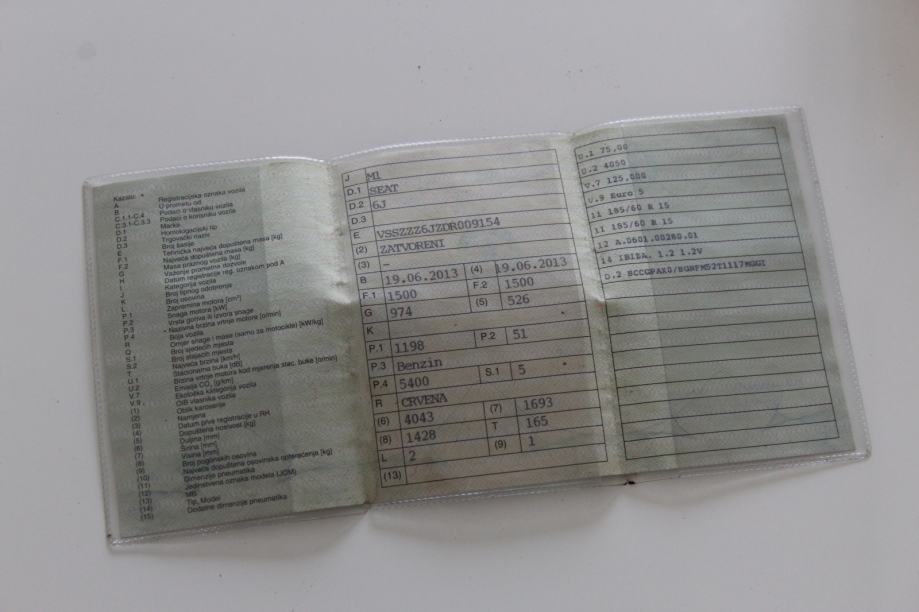 Kazalo:
A Registracijska oznaka vozila
B U prometu od
C.1.1-C.4 Podaci o vlasniku vozila
C.3.1-C.3.3 Podaci o korisniku vozila
D.1 Marka
D.2 Homologacijski tip
D.3 Trgovački naziv
E Broj šasije
F.1 Tehnička najveća dopuštena masa [kg]
F.2 Najveća dopuštena masa [kg]
G Masa praznog vozila [kg]
H Važenje prometne dozvole
I Datum registracije reg. oznakom pod A
J Kategorija vozila
K Broj tipnog odobrenja
L Broj osovina
P.1 Zapremina motora [cm³]
P.2 Snaga motora [kW]
P.3 Vrsta goriva ili izvora snage
P.4 Nazivna brzina vrtnje motora [o/min]
R Boja vozila
Q Omjer snage i mase (samo za motocikle) [kW/kg]
S.1 Broj sjedećih mjesta
S.2 Broj stajaćih mjesta
T Najveća brzina [km/h]
U.1 Stacionarna buka [dB]
U.2 Brzina vrtnje motora kod mjerenja stac. buke [o/min]
V.7 Emisija CO₂ [g/km]
V.9 Ekološka kategorija vozila
(1) OIB vlasnika vozila
(2) Oblik karoserije
(3) Namjena
(4) Datum prve registracije u RH
(5) Dopuštena nosivost [kg]
(6) Duljina [mm]
(7) Širina [mm]
(8) Visina [mm]
(9) Broj pogonskih osovina
(10) Najveća dopuštena osovinska opterećenja [kg]
(11) Dimenzije pneumatika
(12) Jedinstvena oznaka modela (JOM)
(13) MB
(14) Tip, Model
(15) Dodatne dimenzije pneumatika
J M1
D.1 SEAT
D.2 6J
D.3
E VSSZZZ6JZDR009154
(2) ZATVORENI
(3) –
B 19.06.2013 (4) 19.06.2013
F.1 1500 F.2 1500
G 974 (5) 526
K
P.1 1198 P.2 51
P.3 Benzin
P.4 5400 S.1 5
R CRVENA
(6) 4043 (7) 1693
(8) 1428 T 165
L 2 (9) 1
(13)
U.1 75,00
U.2 4050
V.7 125,000
V.9 Euro 5
11 185/60 R 15
11 185/60 R 15
12 A.0601.00280.01
14 IBIZA. 1.2 1.2V
D.2